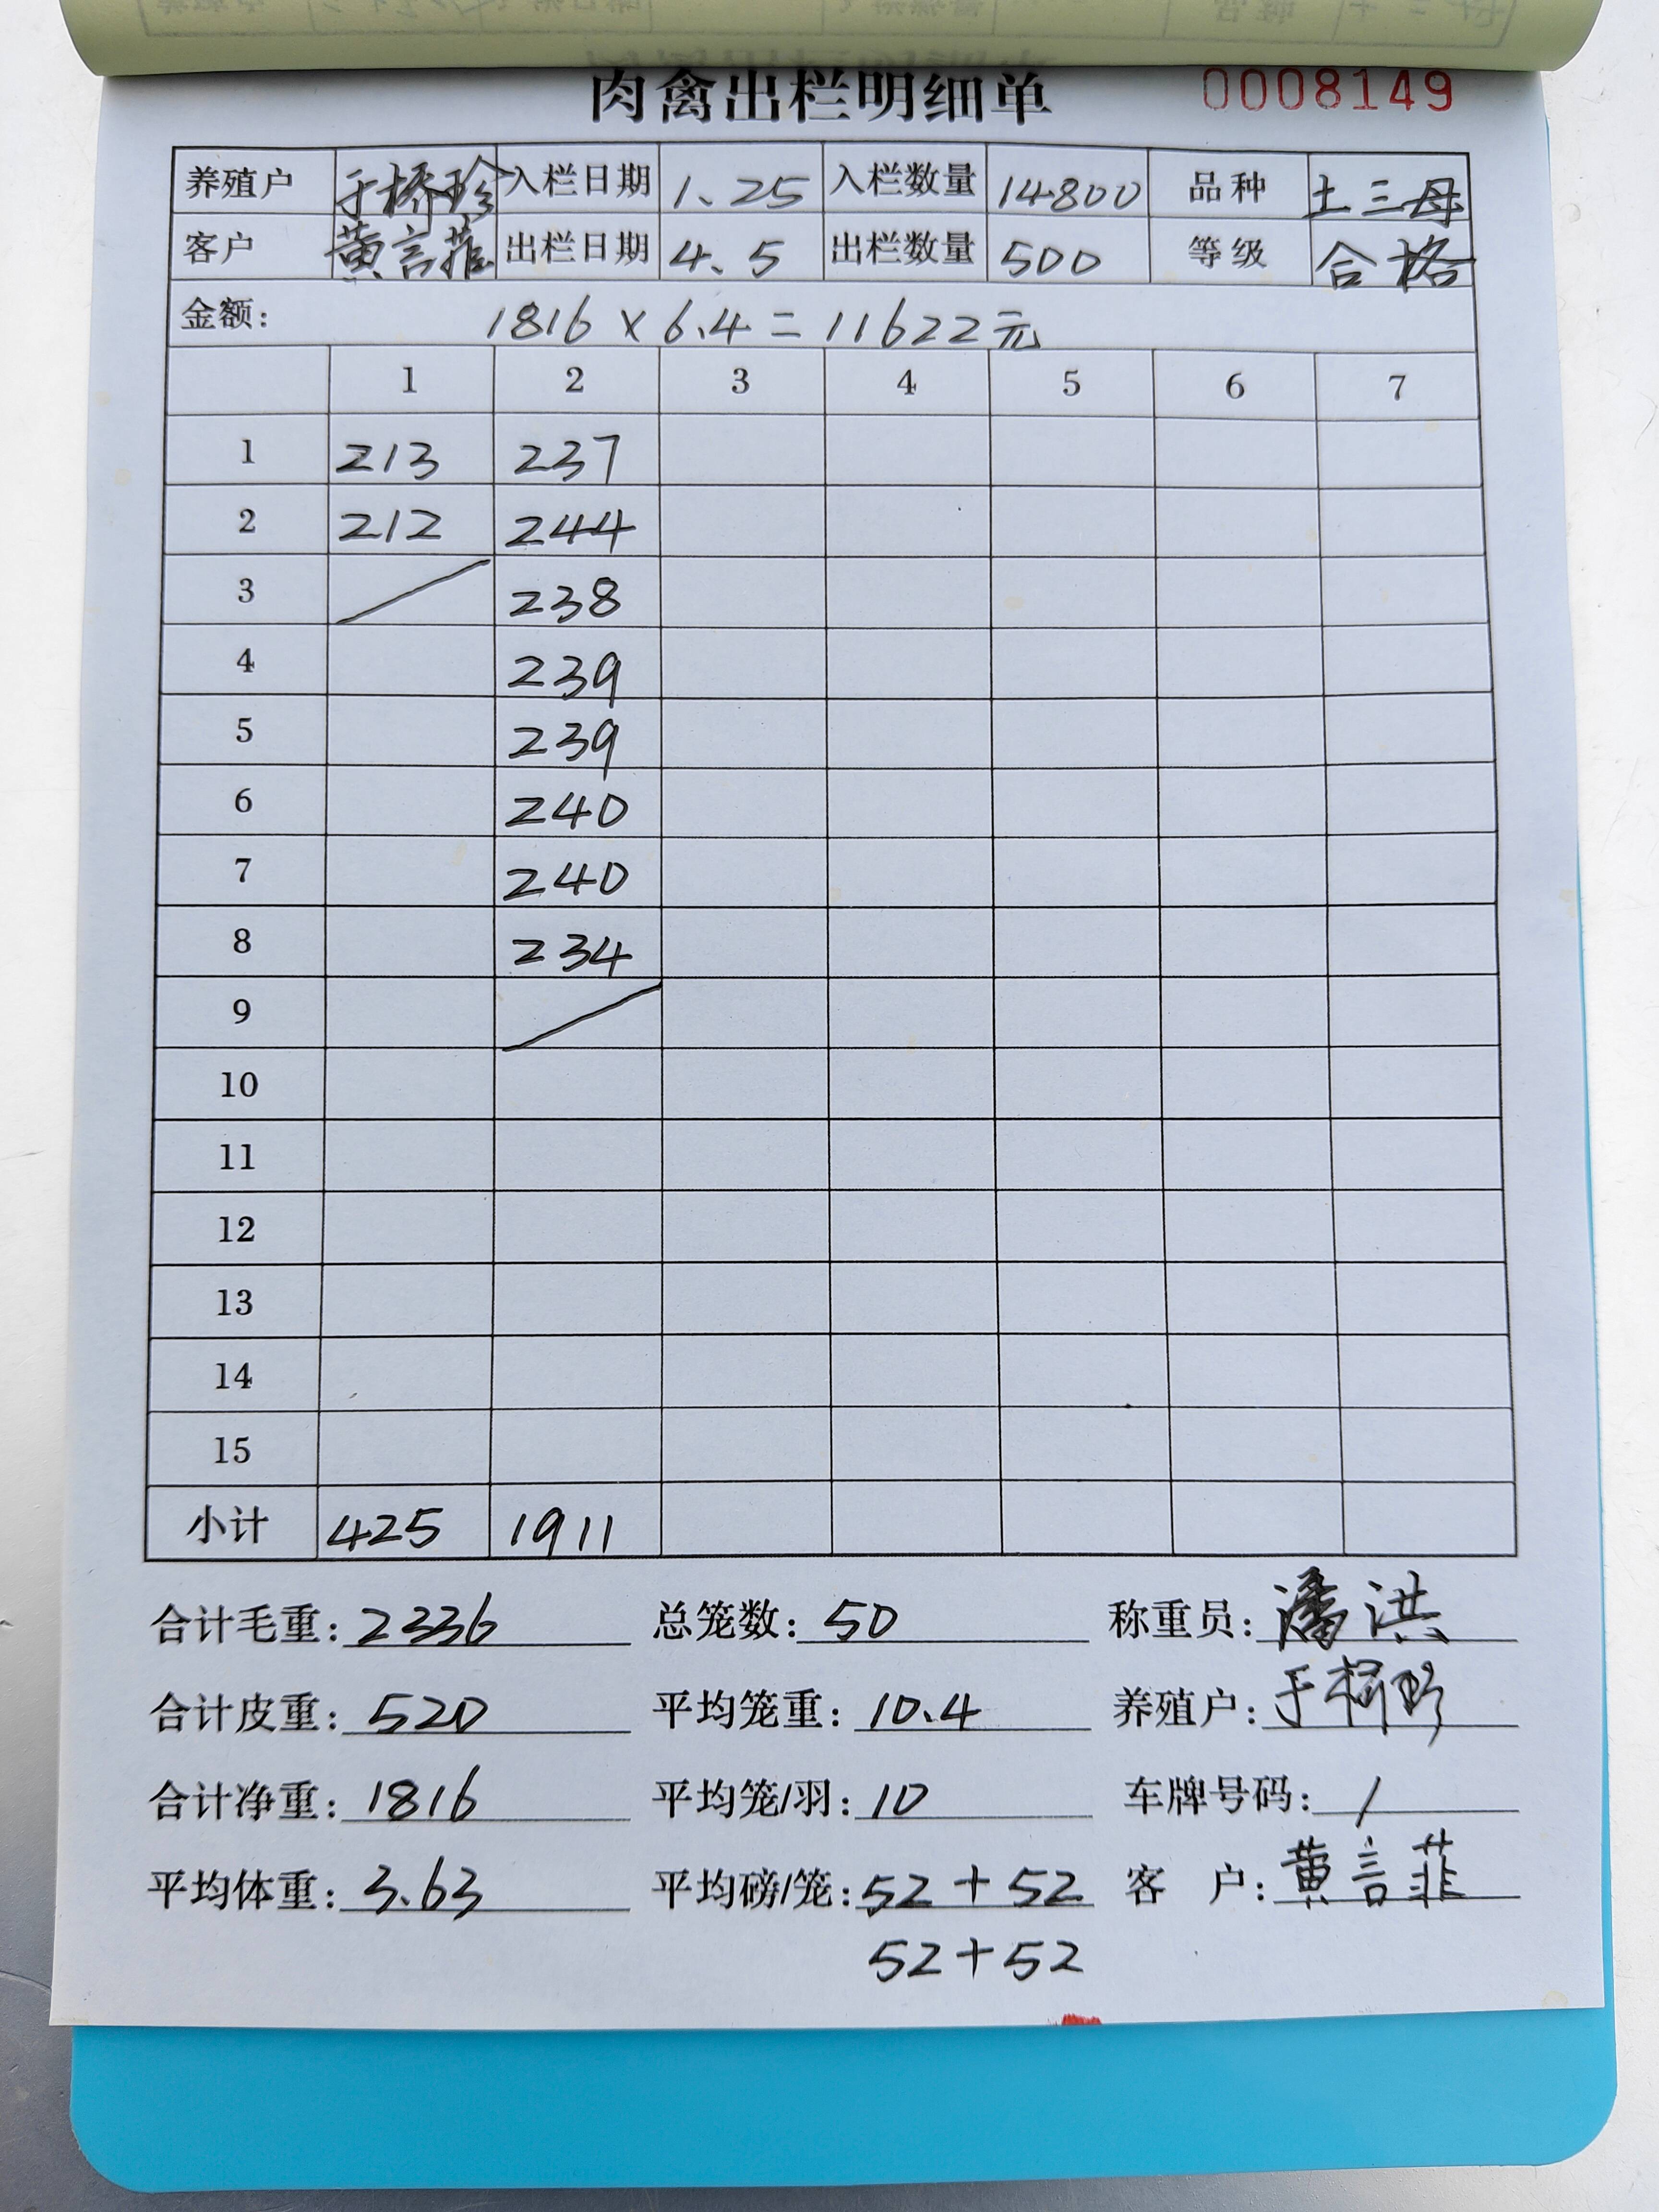 肉禽出栏明细单 0008149
养殖户 于桥珍 入栏日期 1.25 入栏数量 14800 品种 土三母
客户 黄言菲 出栏日期 4.5 出栏数量 500 等级 合格
金额: 1816 × 6.4 = 11622元
1 2 3 4 5 6 7
1 213 237
2 212 244
3 238
4 239
5 239
6 240
7 240
8 234
9
10
11
12
13
14
15
小计 425 1911
合计毛重: 2336 总笼数: 50 称重员: 潘洪
合计皮重: 520 平均笼重: 10.4 养殖户: 于桥珍
合计净重: 1816 平均笼/羽: 10 车牌号码: /
平均体重: 3.63 平均磅/笼: 52+52 客 户: 黄言菲
52+52